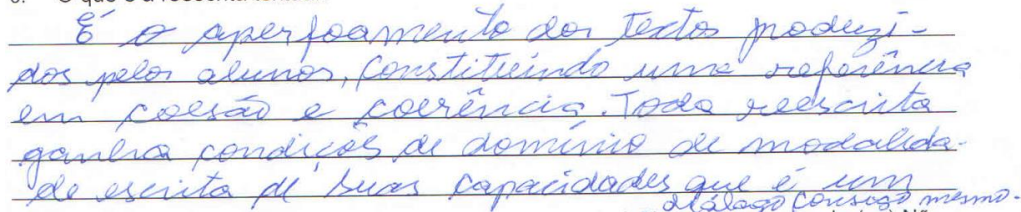 É o aperfoamento dos textos produzi-
dos pelos alunos, constituindo uma referência
em coesão e coerência. Toda reescrita
ganha condições de domínio de modalida-
de escrita de suas capacidades que é um
diálago consigo mesmo.